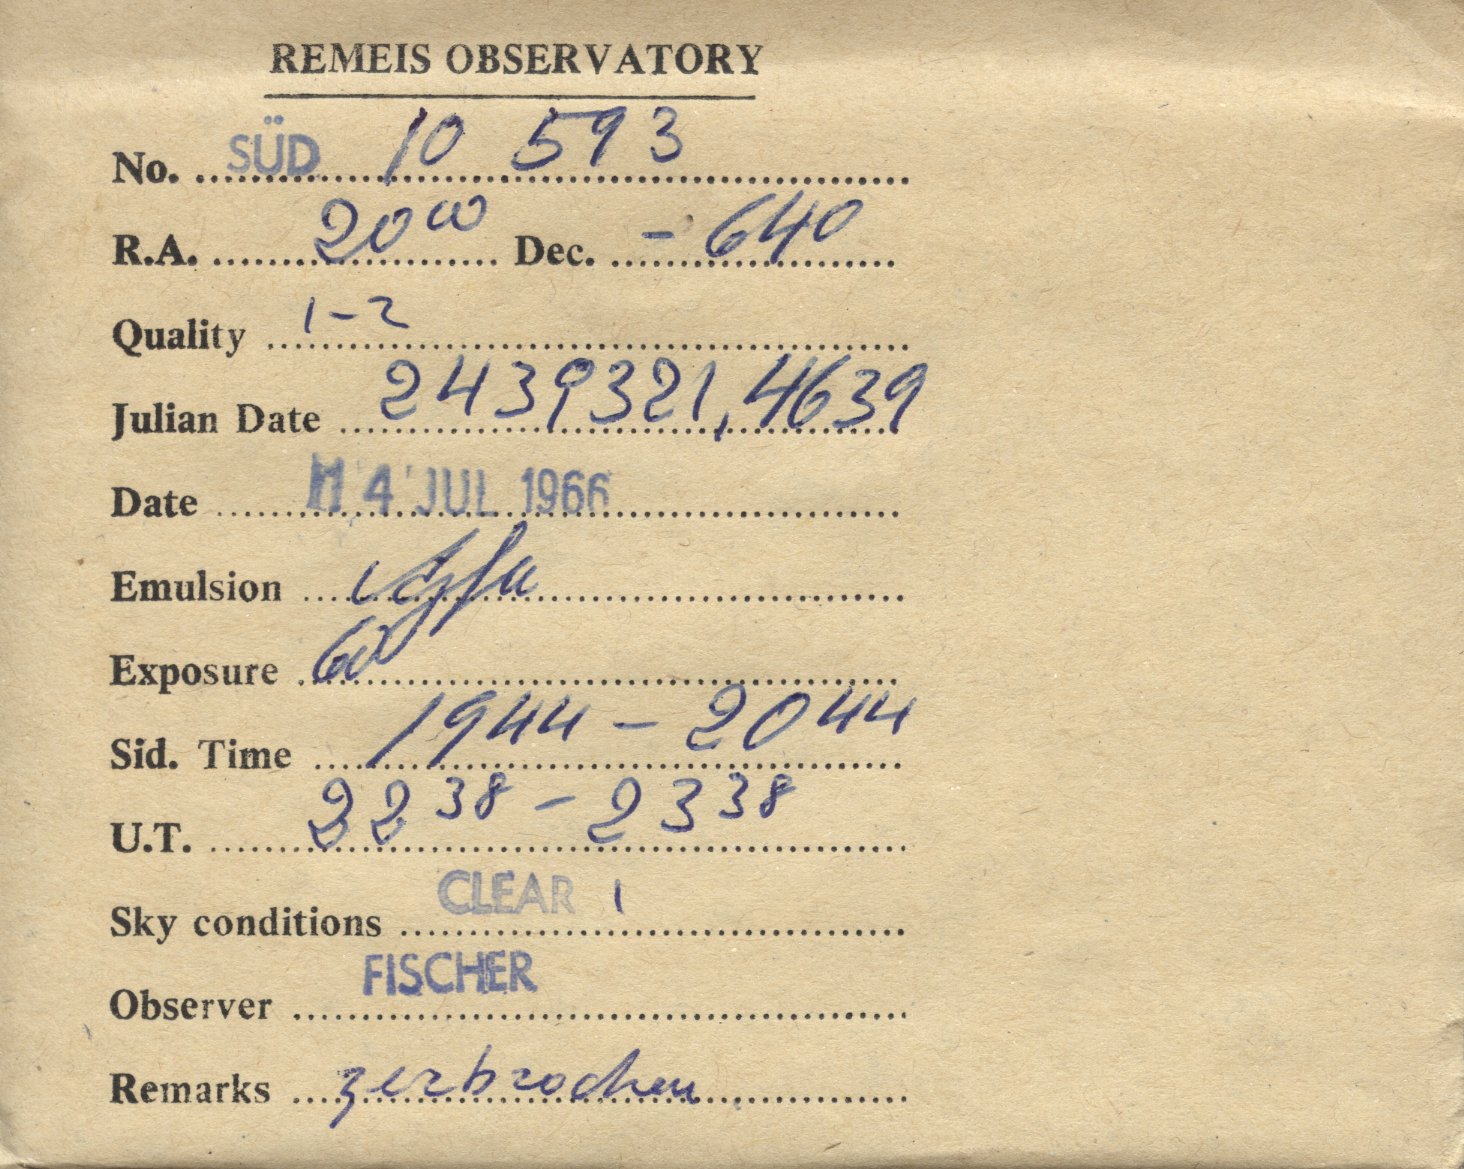 REMEIS OBSERVATORY
No. SÜD 10 593
R.A. 20 00 Dec. - 640
Quality 1-2
Julian Date 2439321,4639
Date 14 JUL 1966
Emulsion Agfa
Exposure 60
Sid. Time 19 44 - 20 44
U.T. 22 38 - 23 38
Sky conditions CLEAR 1
Observer FISCHER
Remarks zerbrochen